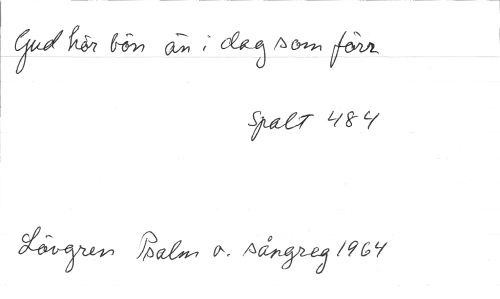 Gud hör bön än i dag som förr
Spalt 484
Lövgren Psalm o. sångreg 1964